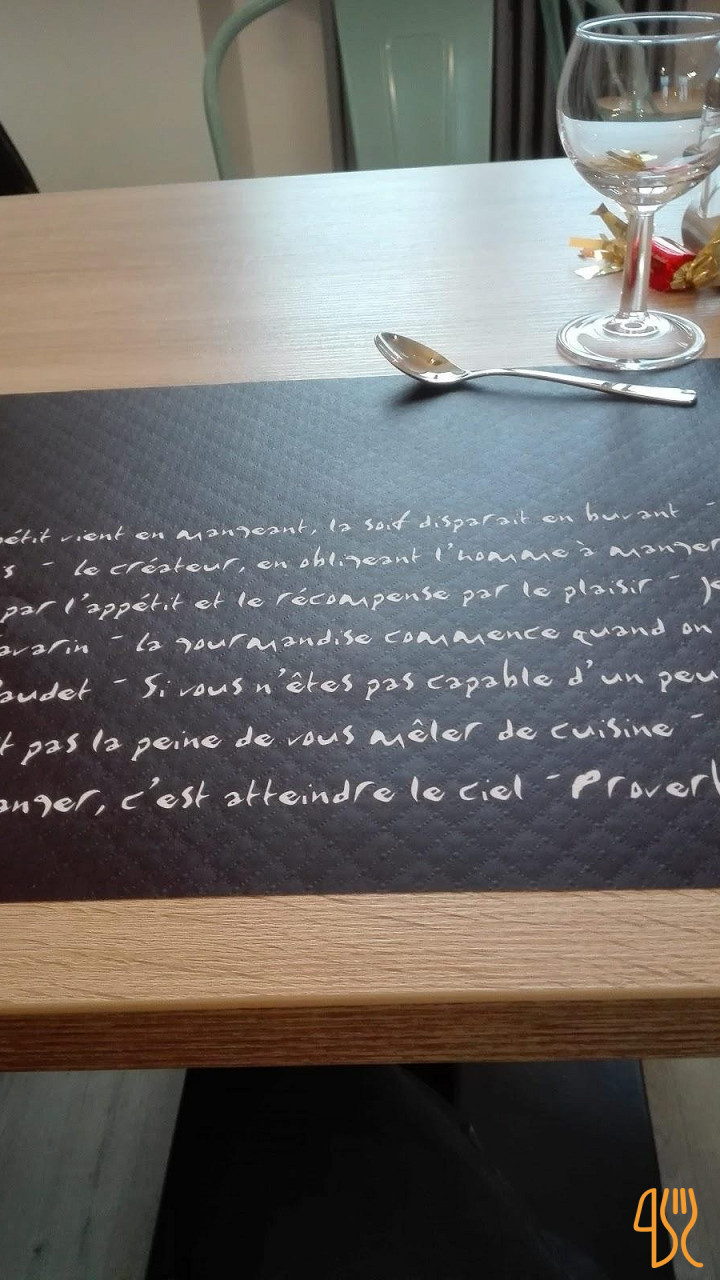 pétit vient en mangeant, la soif disparait en buvant -
s - le créateur, en obligeant l'homme à manger
par l'appétit et le récompense par le plaisir - Je
avarin - la gourmandise commence quand on
audet - Si vous n'êtes pas capable d'un peu
t pas la peine de vous mêler de cuisine -
anger, c'est atteindre le ciel - Proverb